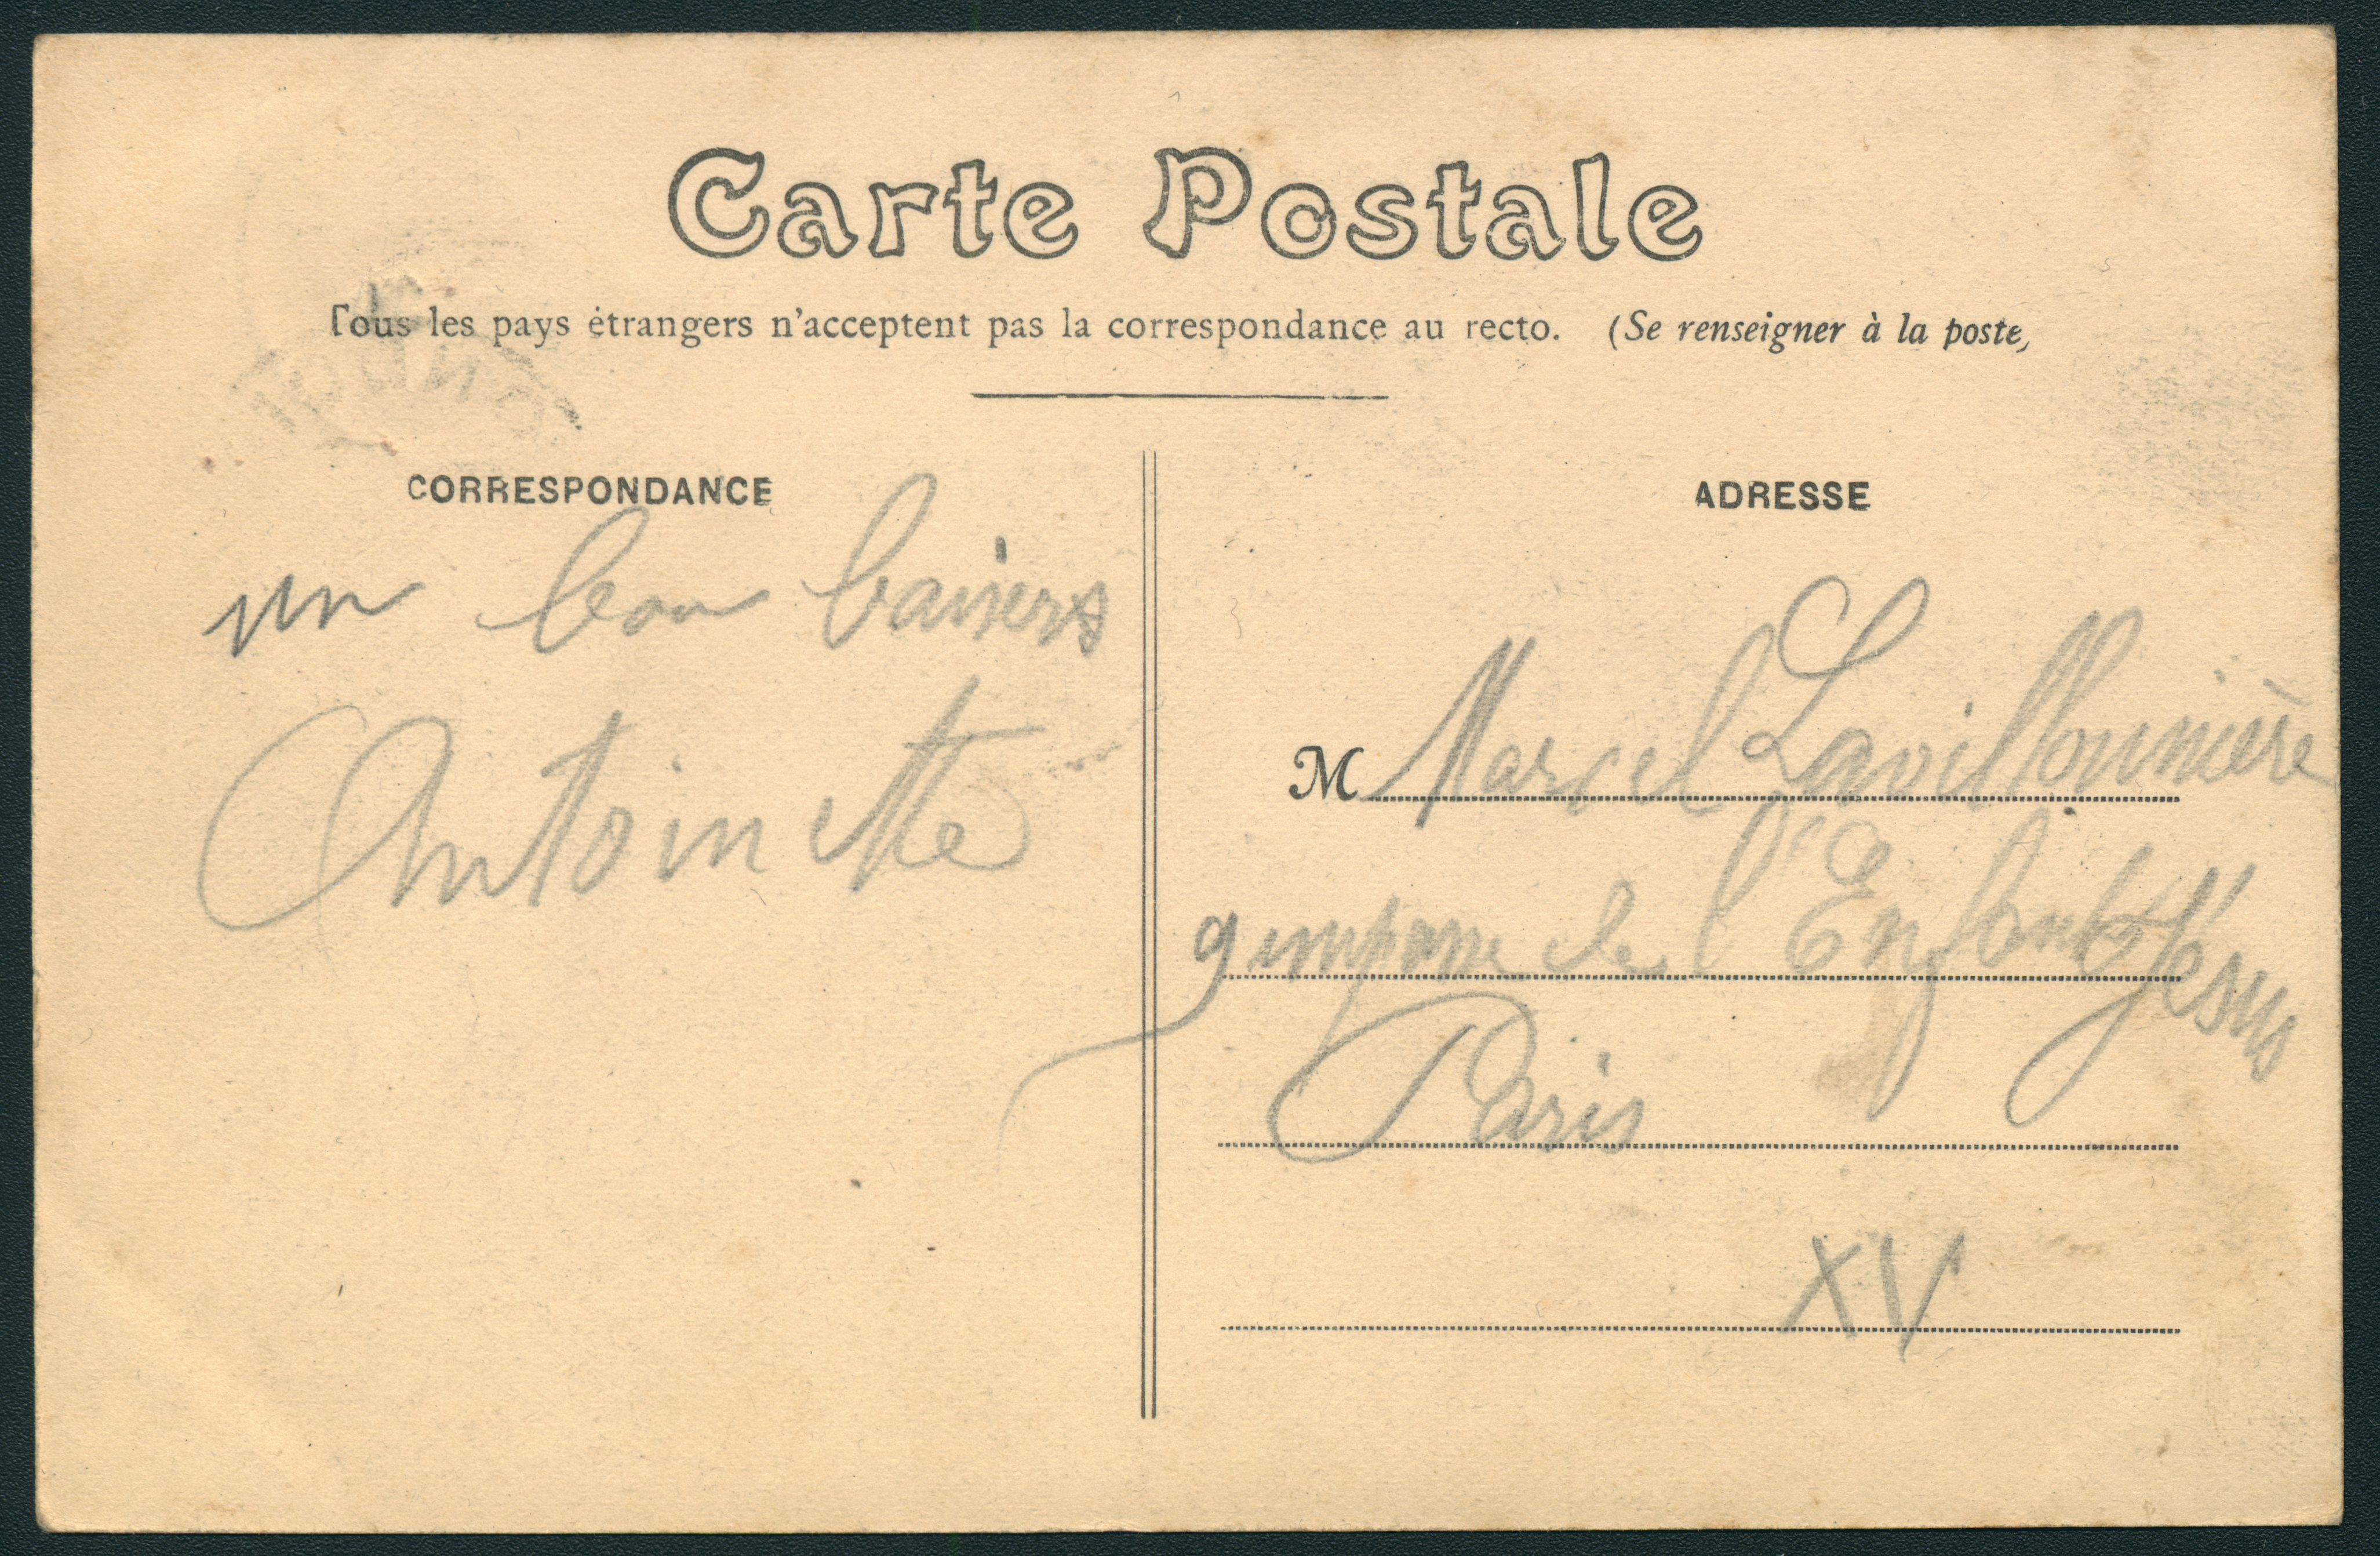 Carte Postale
Tous les pays étrangers n'acceptent pas la correspondance au recto. (Se renseigner à la poste)
CORRESPONDANCE
un bon baisers
Antoinette
ADRESSE
M Marcel Lavillounière
9 de l'Enfant Jésus
Paris
XV